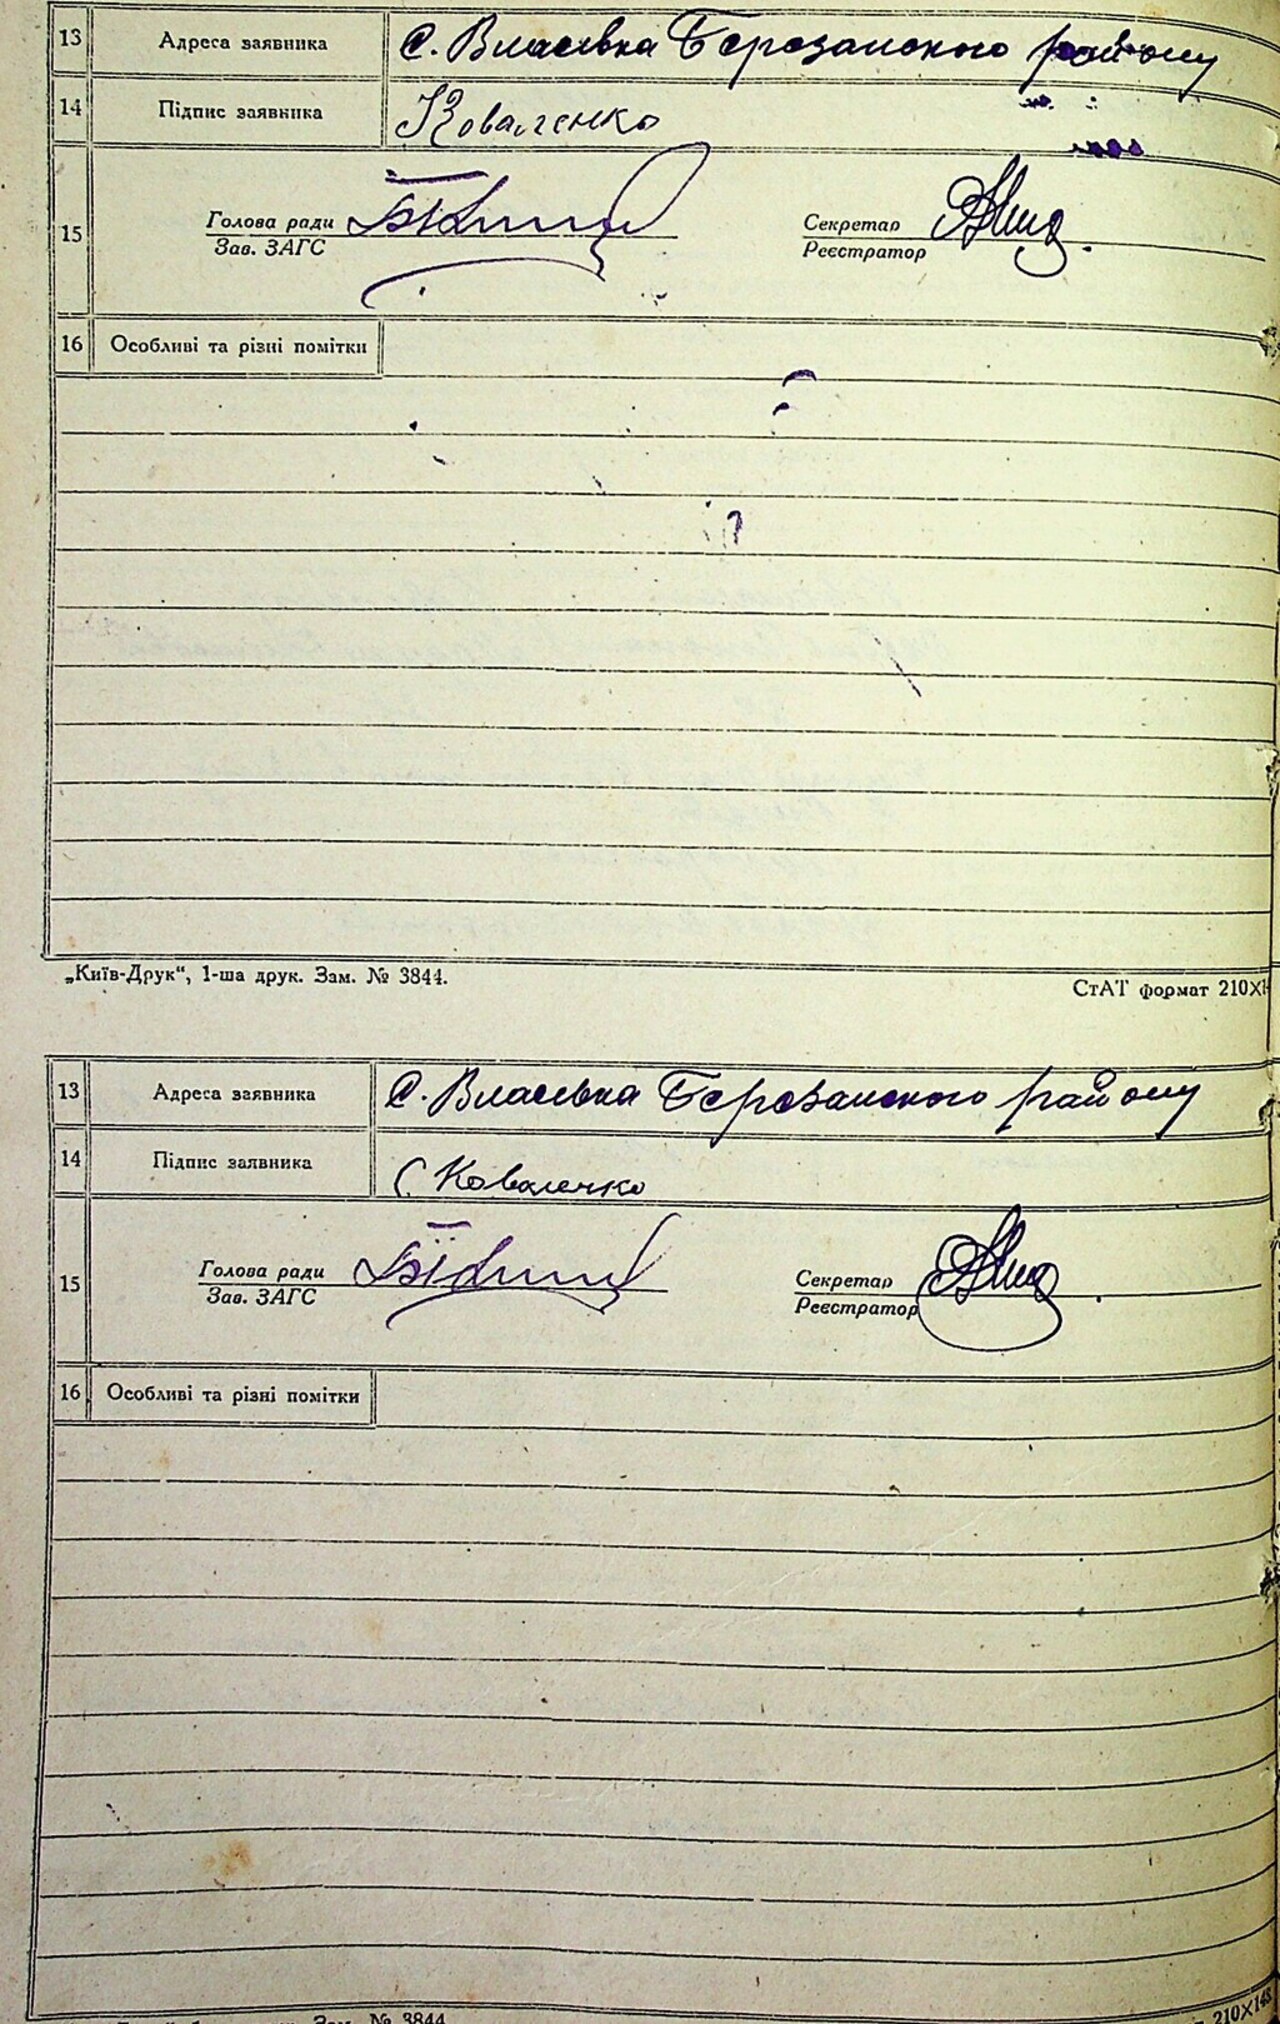 13 Адреса заявника с. Власівка Березанського району
14 Підпис заявника Коваленко
15 Голова ради Секретар
Зав. ЗАГС Реєстратор
16 Особливі та різні помітки
„Київ-Друк“, 1-ша друк. Зам. № 3844. СтАТ формат 210×1
13 Адреса заявника с. Власівка Березанського району
14 Підпис заявника Коваленко
15 Голова ради Секретар
Зав. ЗАГС Реєстратор
16 Особливі та різні помітки
Зам. № 3844 210×148